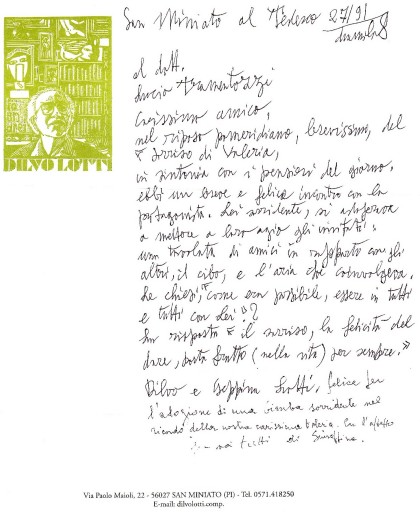 San Miniato al Tedesco 27/91
DILVO LOTTI
al dott.
Lucio
Carissimo amico,
nel riposo pomeridiano, brevissimo, del
"sorriso di Valeria,
in sintonia con i pensieri del giorno,
ebbi un breve e felice incontro con la
protagonista. Lei sorridente, si adoperava
a mettere a loro agio gli invitati:
una tavolata di amici in rapporto con gli
altri, il cibo, e l'aria che coinvolgeva.
Le chiesi, "come era possibile, essere in tutti
e tutti con Lei"?
La risposta "il sorriso, la felicità del
dare, porta frutto (nella vita) per sempre."
Dilvo e Giuseppina Lotti, felice per
l'adozione di una bimba sorridente nel
ricordo della vostra carissima Valeria. Con l'affetto
noi tutti di
Via Paolo Maioli, 22 - 56027 SAN MINIATO (PI) - Tel. 0571.418250
E-mail: dilvolotti.comp.